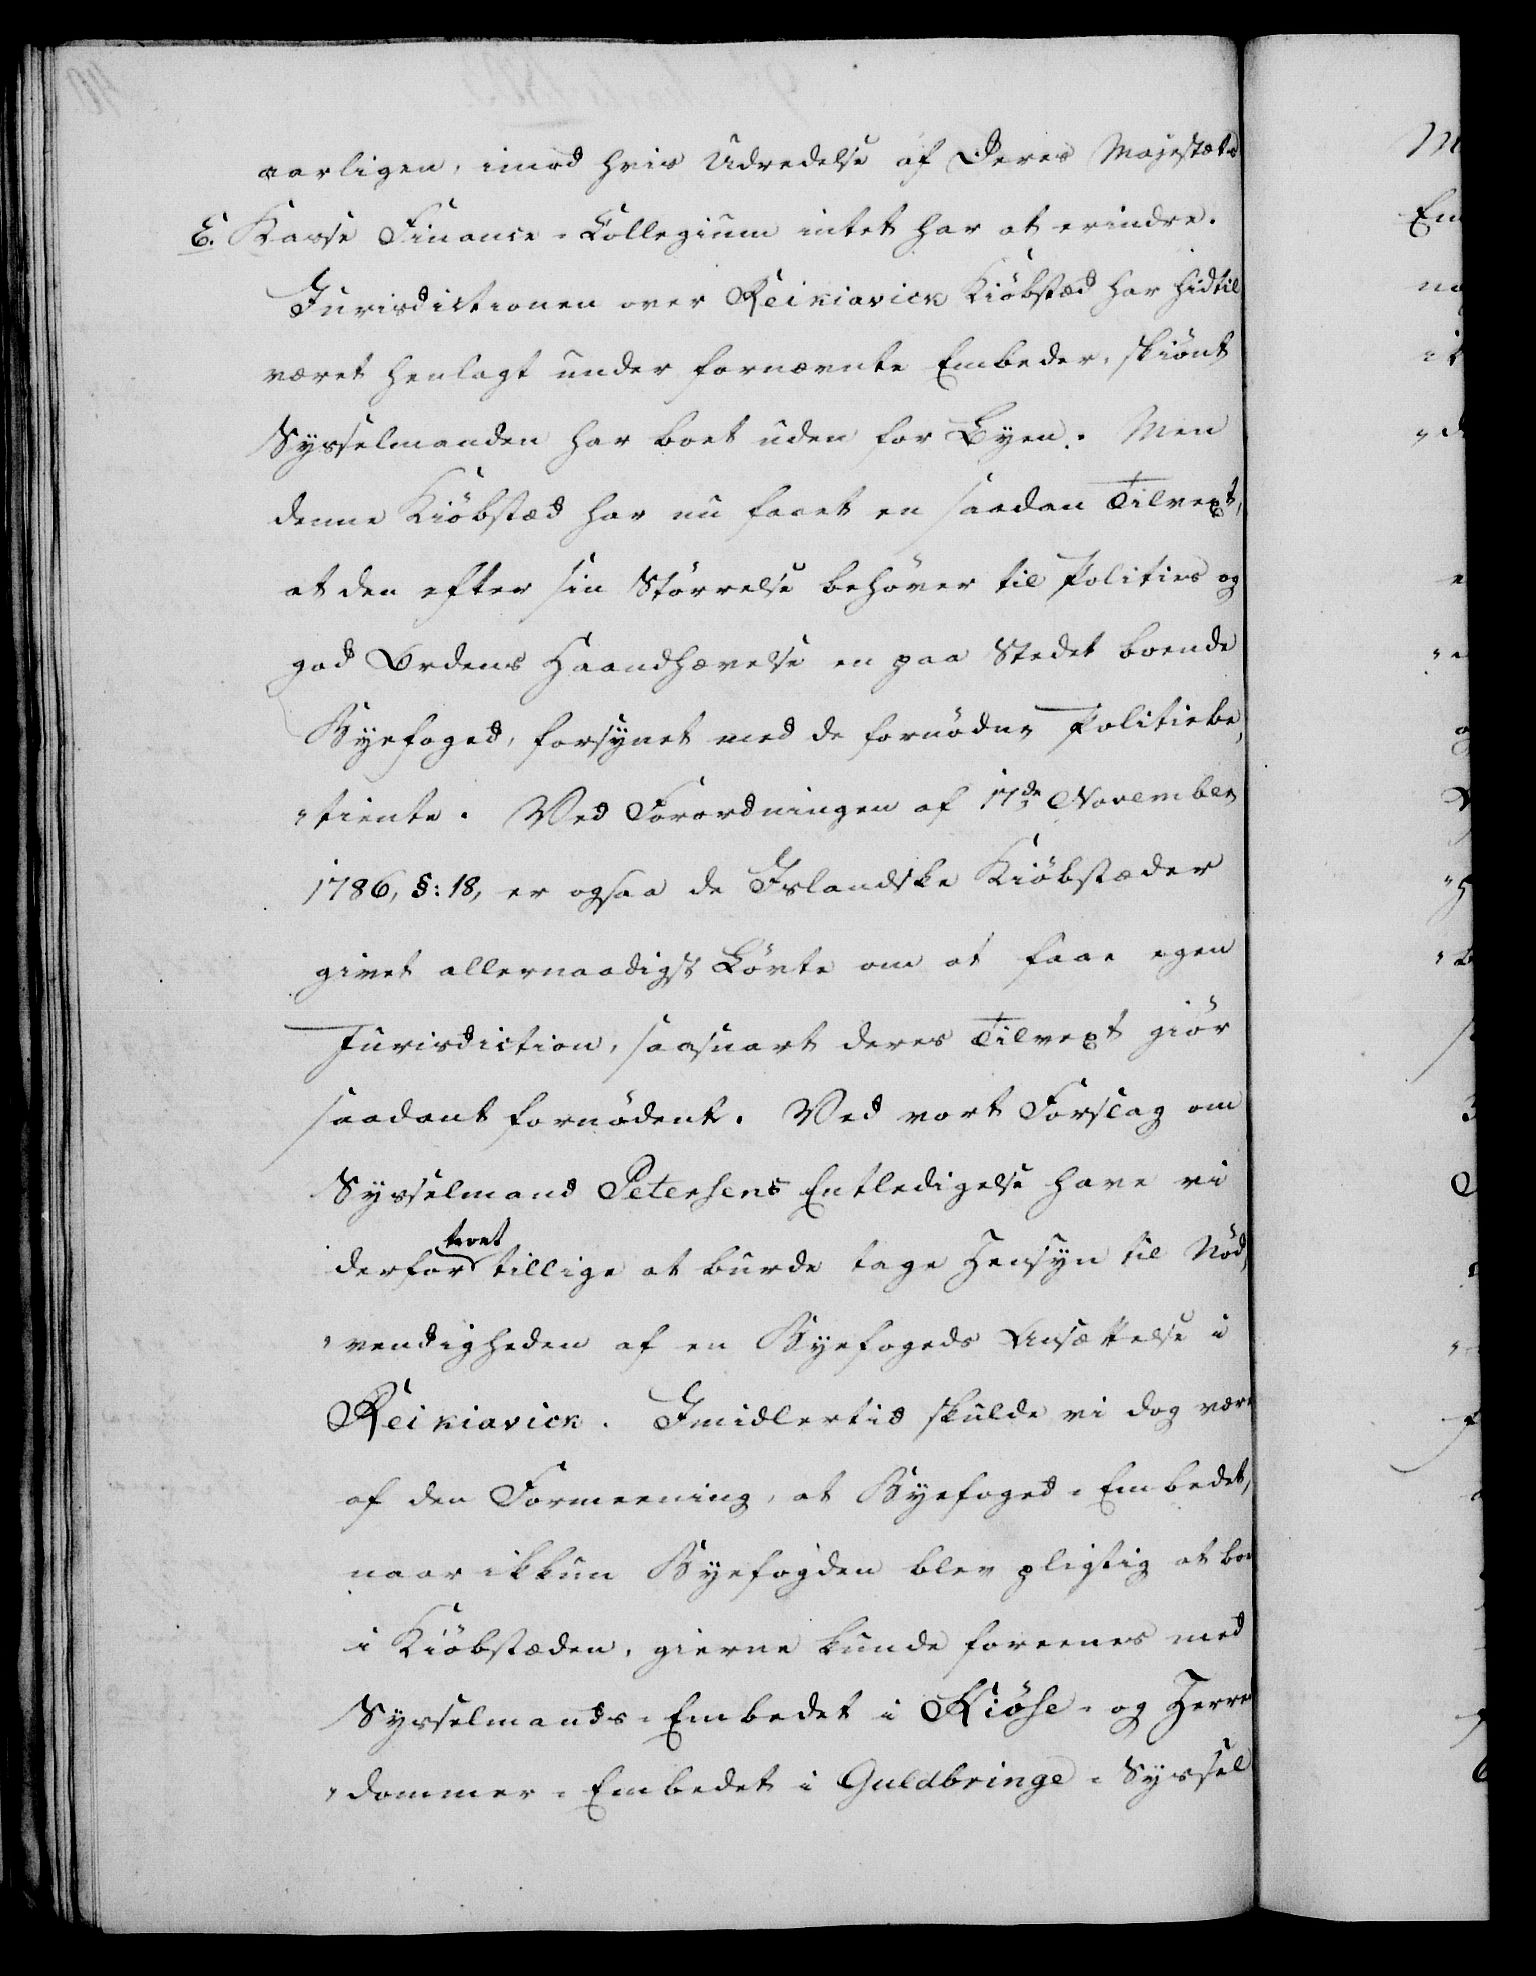 aarligen, imod hvis Udredelse af Deres Majestæts
E. Kasse Finance-Collegium intet har at erindre.
Jurisdictionen over Reikiavick Kiöbstæd har hidtil
været henlagt under fornævnte Embeder, skiönt
Sysselmanden har boet uden for Byen. Men
denne Kiöbstæd har nu faaet en saadan Tilvext,
at den efter sin Störrelse behöver til Polities og
god Ordens Haandhævelse en paa Stedet boende
Byefoged, forsynet med de fornödne Politiebe,
"tiente. Ved Forordningen af 17de November
1786, §: 18, er ogsaa de Islandske Kiöbstæder
givet allernaadigst Lövte om at faae egen
Jurisdiction, saasnart deres Tilvext giör
saadant fornödent. Ved vort Forslag om
Sysselmand Petersens Entledigelse have vi
troet
derfor tillige at burde tage Hensyn til Nöd,
"vendigheden af en Byefogeds Ansættelse i
Reikiavick. Imidlertid skulde vi dog være
af den Formeening, at Byefoged-Embedet,
naar ikkun Byefogden blev pligtig at boe
i Kiöbstæden, gierne kunde foreenes med
Sysselmands-Embedet i Kiöse- og Herre
"dommer-Embedet i Guldbringe-Syssel